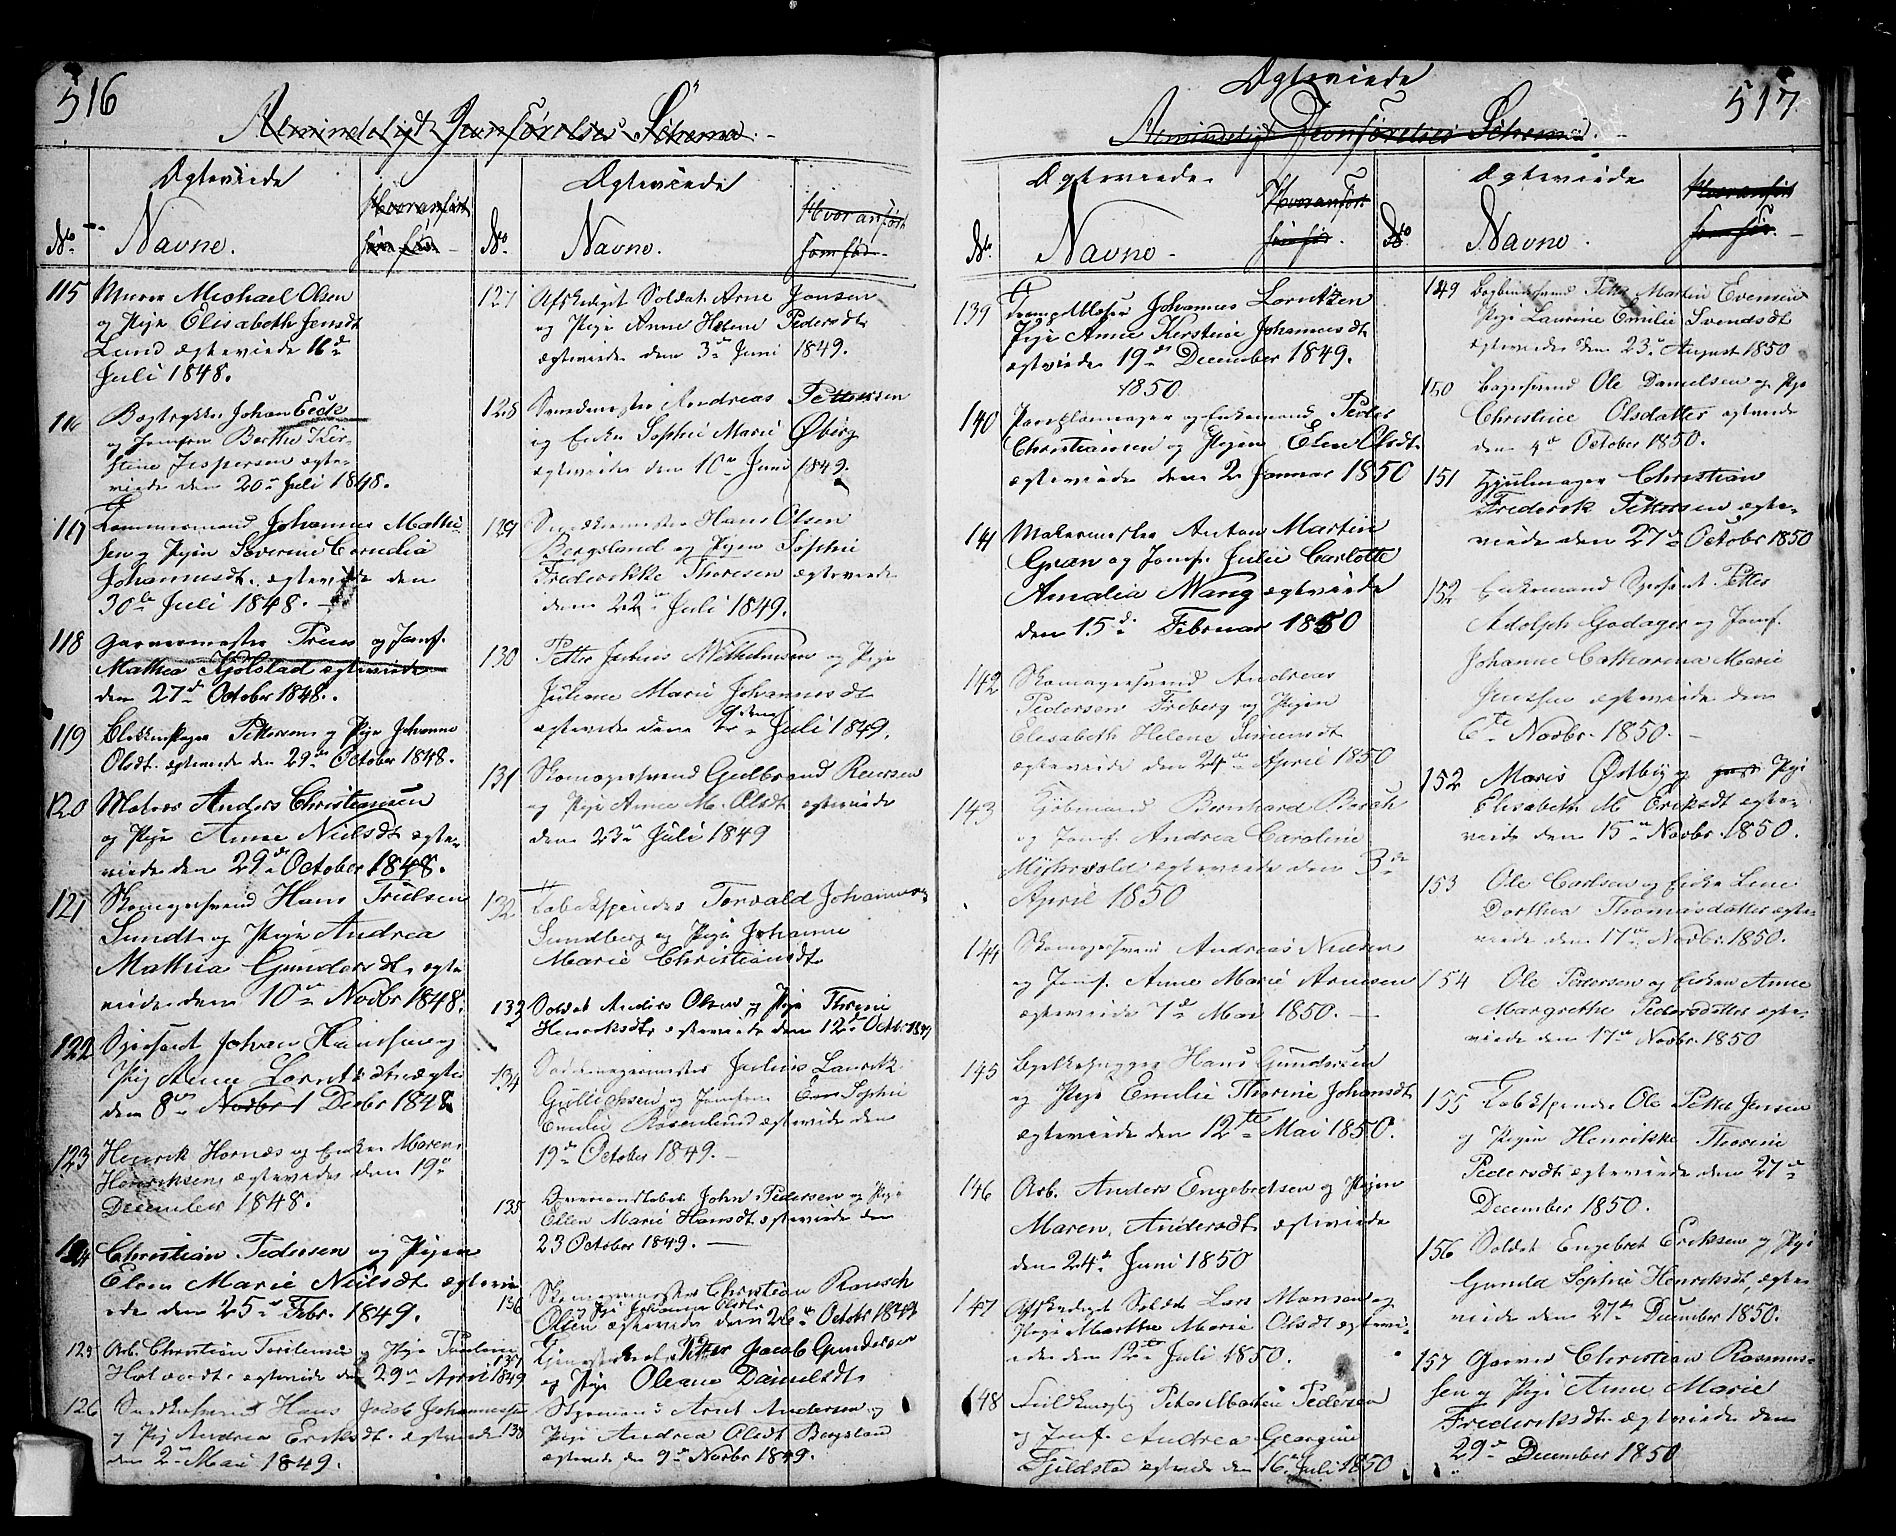 516
Almindeligt Jevnførelses Schema.
Ægteviede
Hvor anført
No
Navne.
som før
115 Murer Michael Olsen
og Pige Elisabeth Jensdt
Lund ægteviede 16de
Juli 1848.
116 Bogtrykker Johan Eeck
og Jomfru Berthe Kir-
stine Jespersen ægte-
viede den 20de Juli 1848.
117 Tømmermand Johannes Mathi-
sen og Pigen Severine Cornelia
Johannesdt. ægteviede den
30te Juli 1848.
118 Garvermester Truns og Jomf.
Mathea Kjølstad ægteviede
den 27de October 1848.
119 Blikkenslager Pettersen og Pige Johanne
Olsdt. ægteviede den 29de October 1848.
120 Matros Anders Christiansen
og Pige Anne Nielsdt ægte-
viede den 29de October 1848.
121 Skomagersvend Hans Trulsen
Lundt og Pige Andrea
Mathia Gundersdt. ægte
viede den 10de Novbr 1848.
122 Sergeant Johan Hansen og
Pig Anne Lorntzdt ægte
den 8de Novbr 1 Decbr 1848
123 Henrik Hornæs og Enke Maren
Henriksen ægteviede den 19de
December 1848.
124 Christian Pedersen og Pigen
Elen Marie Nielsdt ægtevi
ede den 25de Febr. 1849.
125 Arb. Christian Torstensen og Pige Pauline
Halvordt. ægteviede den 29de April 1849
126 Snedkersvend Hans Jacob Johannesen
og Pig Andrea Eriksdt. ægteviede
den 2den Mai 1849.
Ægteviede
Hvor anført
No
Navne.
som før
127 Afskediget Soldat Arne Jonsen
og Pige Anne Helene Pedersdt
ægteviede den 3de Juni 1849.
128 Svendmester Andreas Pettersen
og Enke Sophie Marie Øberg
ægteviede den 10de Juni 1849.
129 Snedkermester Hans Olsen
Bergsland og Pigen Sophie
Frederikke Thoresen ægteviede
den 22de Juli 1849.
130 Petter Julius Wilhelmsen og Pige
Juliane Marie Johannesdt
ægteviede den 9de Juli 1849.
131 Skomagersvend Gulbrand Reiersen
og Pige Anne M. Olsdt ægteviede
den 23de Juli 1849
132 Tobakspinder Torvald Johannes
Sundberg og Pige Johanne
Marie Christiansdt
133 Soldat Anders Olsen og Pige Thrine
Henriksdt ægteviede den 12de Octbr 1849
134 Sadelmagermester Julius Lauritz
Gullichsen og Jomfru Sophie
Emilie Rosenlund ægteviede den
19de October 1849.
135 John Pedersen og Pige
Ellen Marie Hansdt ægteviede den
23 October 1849.
136 Skomagermester Christian Rausch
Olsen og Pige Johanne Olsdtr
ægteviede den 26de Octobr 1849
137 Petter Jacob Gundersen
og Pige Oleane Danielsdt
138 Styrmand Arnt Andersen og
Pige Andrea Olsdt Bergsland
ægteviede den 9de Novbr 1849.
Ægteviede
517.
Almindeligt Jevnførelses Schema.
Ægteviede
Hvor anført
No
Navne.
som før.
139 Johannes Lorntzen
Pige Anne Kerstine Johannesdt
ægteviede 19de December 1849.
1850
140 og Enkemand Peder
Christiansen og Pigen Elen Olsdt
ægteviede den 2 Januar 1850
141 Malermester Anton Martin
Gran og Jomf. Julie Carlotte
Amalia Mang ægteviede
den 15de Februar 1850
142 Skomagersvend Andreas
Pedersen Friberg og Pigen
Elisabeth Helene Simensdt
ægteviede den 24de April 1850
143 Kjøbmand Bernhard Borch
og Jomf. Andrea Caroline
ægteviede den 3de
April 1850
144 Skomagersvend Andreas Nielsen
og Jomf. Anne Marie Arnesen
ægteviede 7de Mai 1850.
145 Blokkehugger Hans Gundersen
og Pige Emilie Thorine Johansdt
ægteviede den 12te Mai 1850.
146 Arb. Anders Engebretsen og Pigen
Maren Andersdt ægteviede
den 24de Juni 1850
147 Afskediget Soldat Lars Monsen og
Pige Marthe Marie Olsdt ægtevi-
ede den 12te Juli 1850.
148 Peter Martin Pedersen
og Jomf. Andrea Georgine
Fjeldstad ægteviede den 16de Juli 1850
Ægteviede
Hvor anført
No
Navne.
som før.
149 Petter Martin Evensen
Pige Laurine Emilie Svendsdt
ægteviede den 23de August 1850
150 Bagersvend Ole Danielsen og Pige
Christine Olsdatter ægteviede
den 4de October 1850.
151 Hjulmager Christian
Frederik Pettersen ægte-
viede den 27de Octobr 1850
152 Enkemand Sergeant Petter
Adolph Godager og Jomf.
Johanne Catharina Marie
Jensen ægteviede den
6te Novbr. 1850.
152 Maris Østby og Pige
Elisabeth M Eriksdt ægte-
viede den 15de Novbr. 1850.
153 Ole Carlsen og Enke Lene
Dorthea Thomasdatter ægte-
viede den 17de Novbr. 1850.
154 Ole Pedersen og Enken Anne
Margrethe Pedersdatter ægte-
viede den 17de Novbr. 1850
155 Tobakspinder Ole Petter Jensen
og Pigen Henrikke Thorine
Pedersdt ægteviede den 27de
December 1850.
156 Soldat Engebret Eriksen og Pige
Gunild Sophie Henriksdt ægte-
viede den 27de December 1850.
157 Garver Christian Rasmus-
sen og Pige Anne Marie
Frederiksdt ægteviede den
29de December 1850